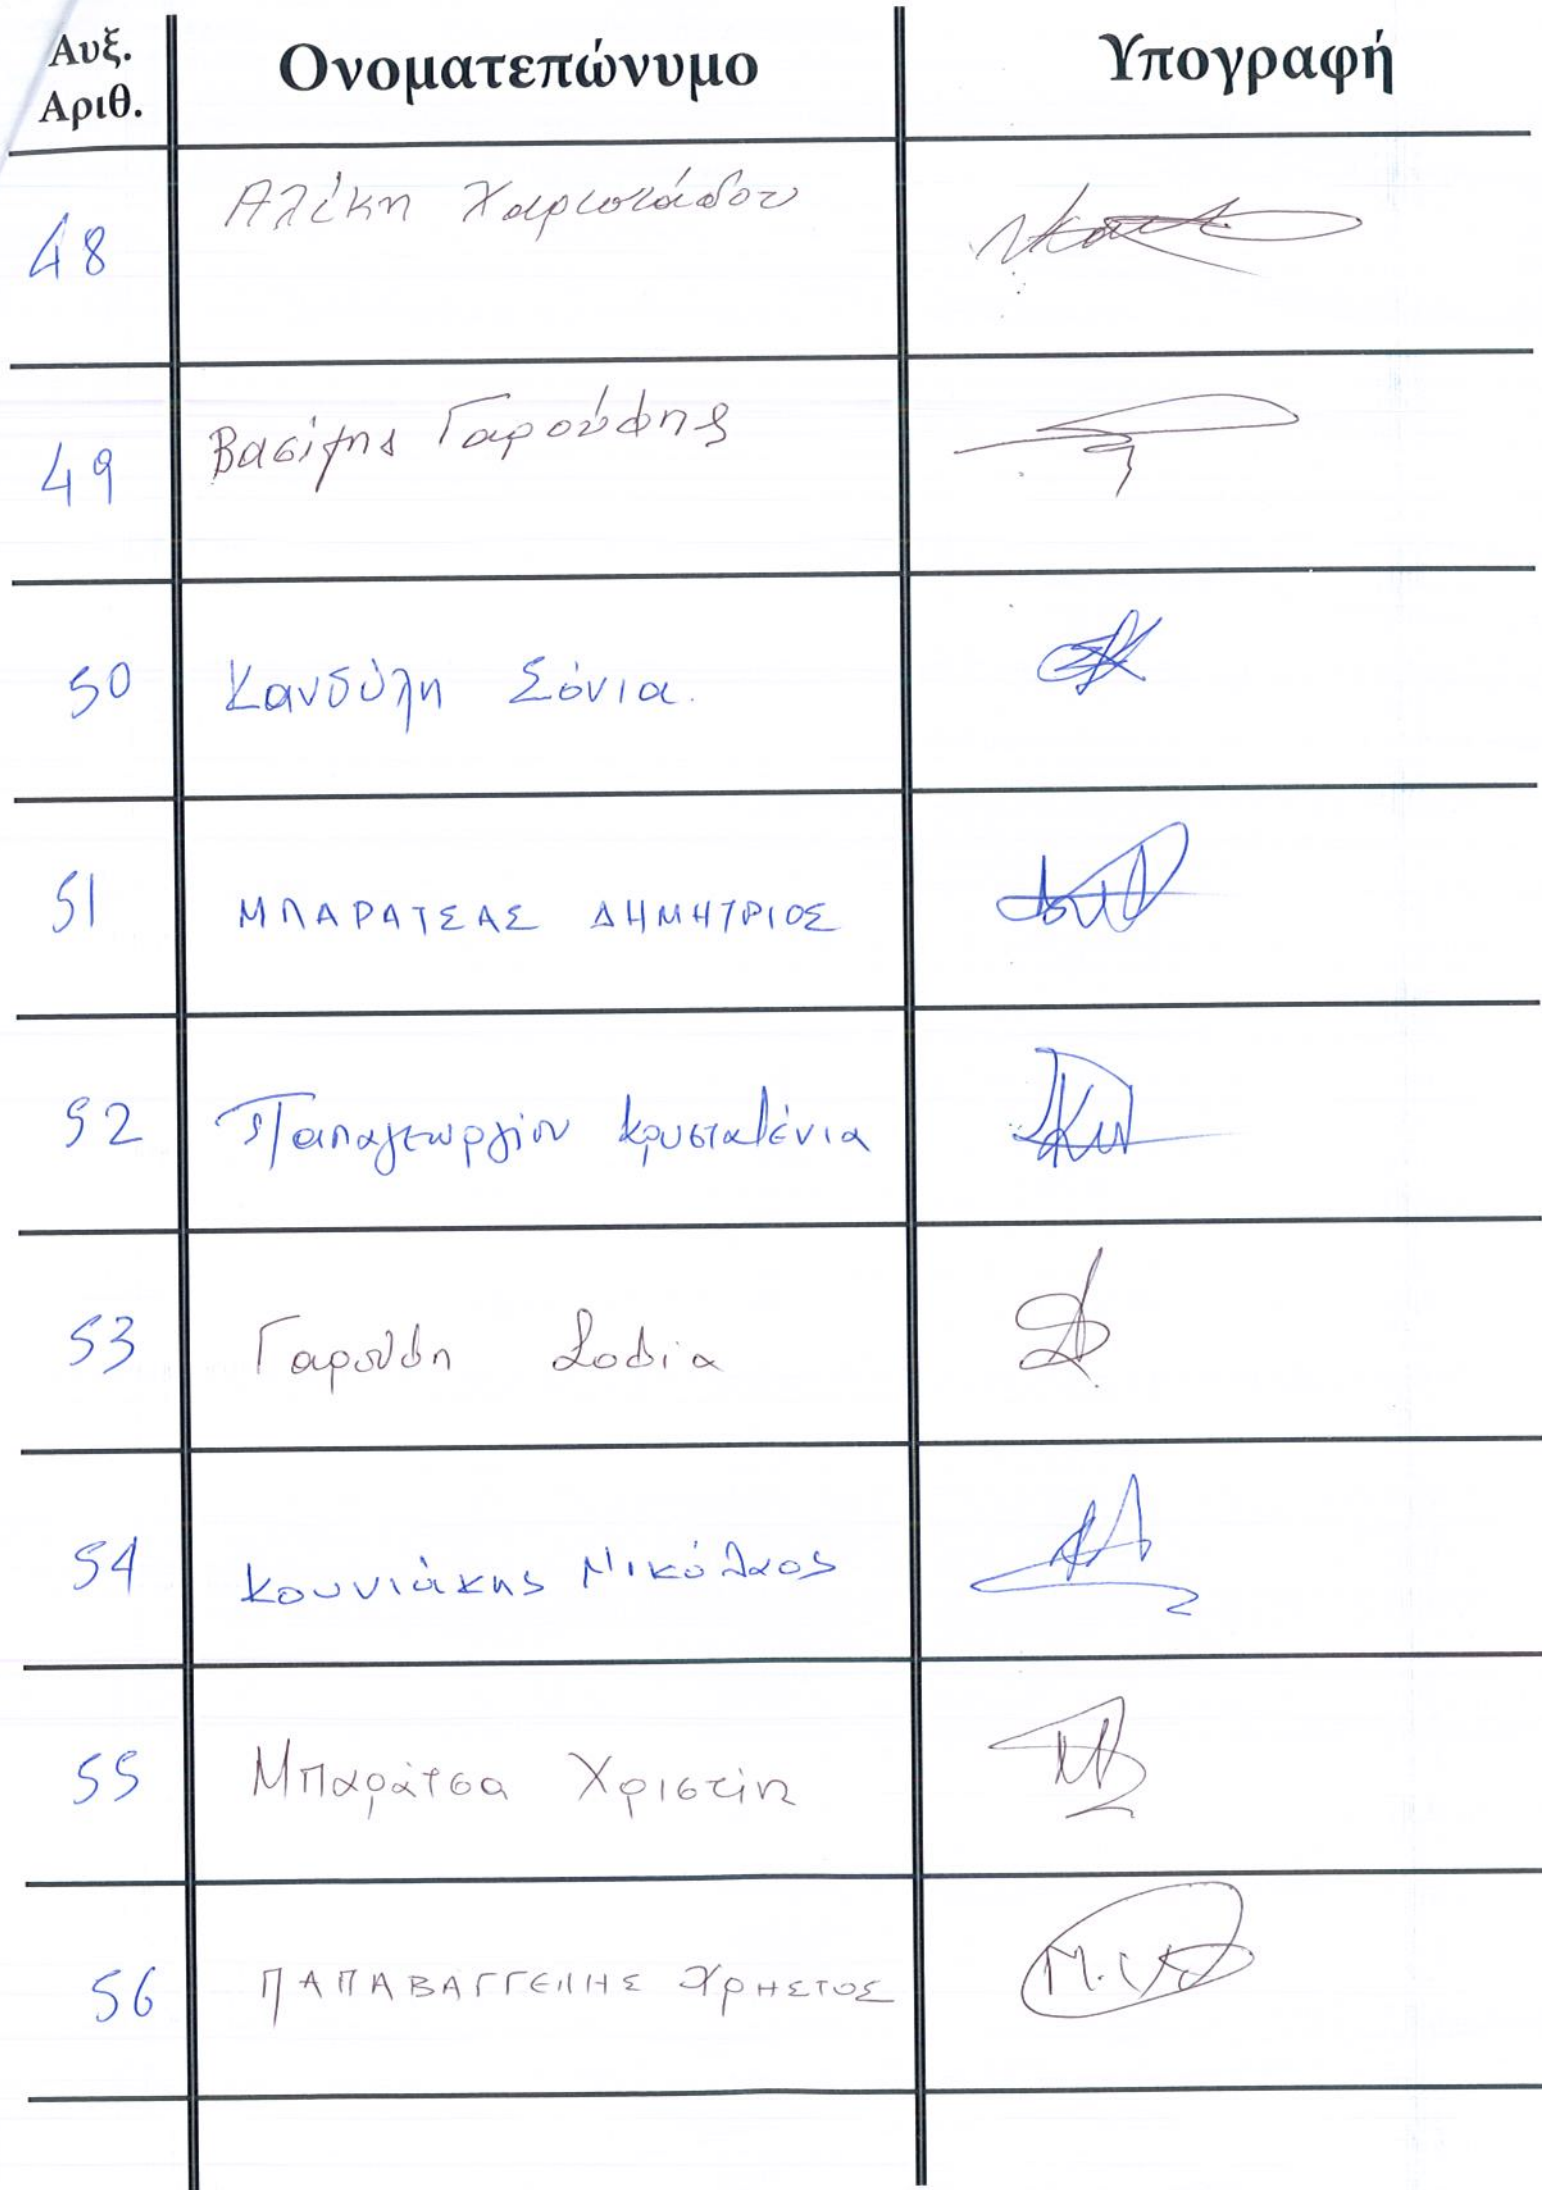 Αυξ. Αριθ. Ονοματεπώνυμο Υπογραφή
48 Αλίκη
49 Βασίλης Γαρούφης
50 Κανδύλη Σόνια.
51 ΜΠΑΡΑΤΣΑΣ ΔΗΜΗΤΡΙΟΣ
52 Παπαγεωργίου Κρυσταλένια
53 Γαρούφη Σοφία
54 Κουνιάκης Νικόλαος
55 Μπαράτσα Χριστίνα
56 ΠΑΠΑΒΑΓΓΕΛΗΣ ΧΡΗΣΤΟΣ